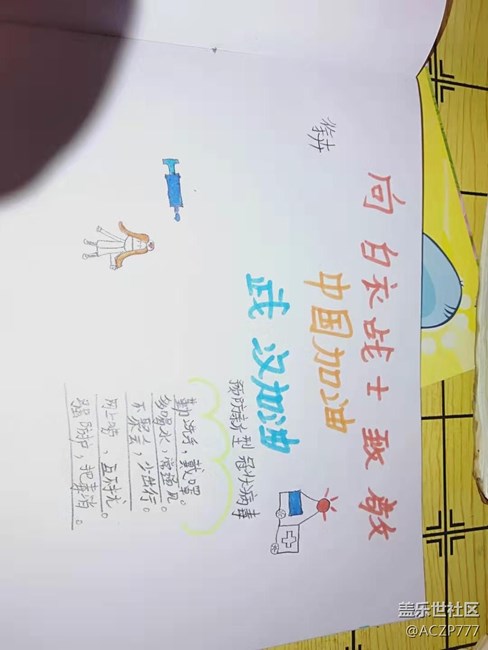 向白衣战士致敬
中国加油
武汉加油
预防新型冠状病毒
勤洗手，戴罩。
多喝水，常通风。
不聚会，少外行。
网上学，
强防护，把毒消。
盖乐世社区
@ACZP777